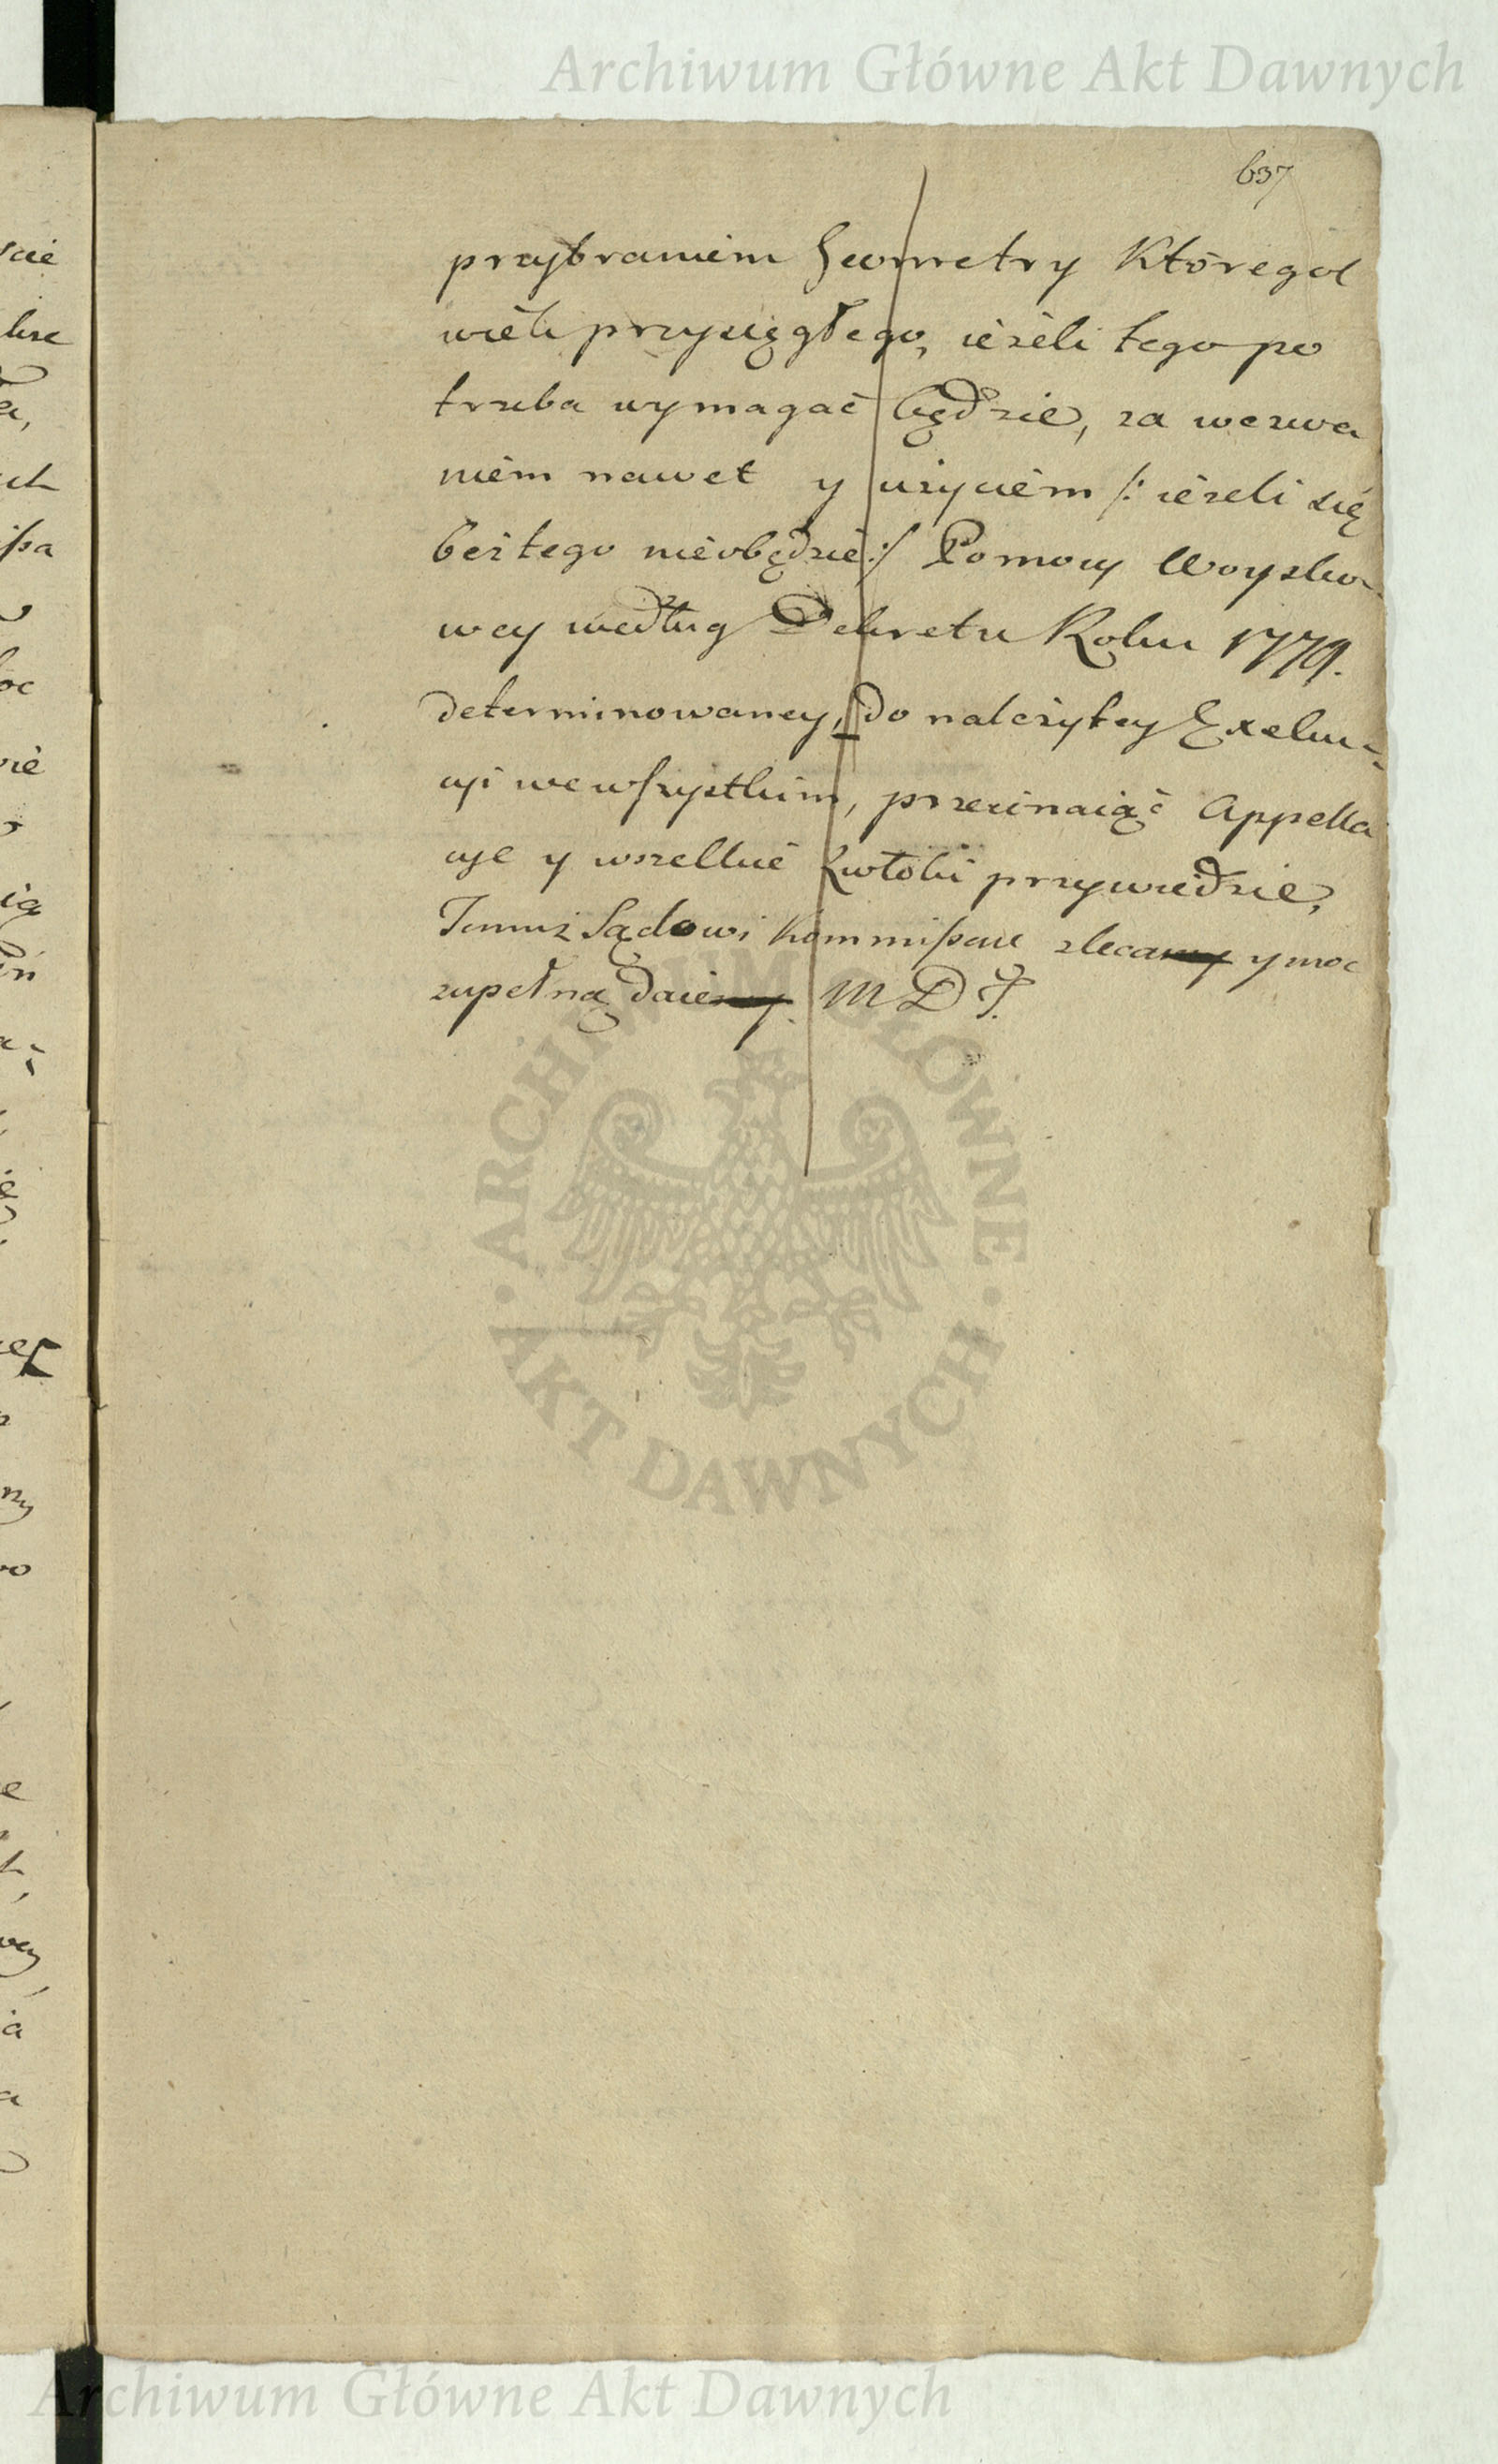 Archiwum Główne Akt Dawnych
637
przybraniem Geometry Któregol
wiek przysięgłego, ieżeli tego po
trzeba wymagać będzie, za wezwa
niem nawet y użyciem /: ieżeli się
bez tego nieobędzie :/ Pomocy Woysko
wey według Dekretu Roku 1779.
determinowaney, do należytey Exeku-
cyi we wszystkim, przecinaiąc Appella
cye y wszelkie Zwłoki przywiedzie,
Temuż Sądowi Kommissar zlecamy y moc
zupełną daiemy. M D J.
ARCHIWUM GŁÓWNE
AKT DAWNYCH
Archiwum Główne Akt Dawnych